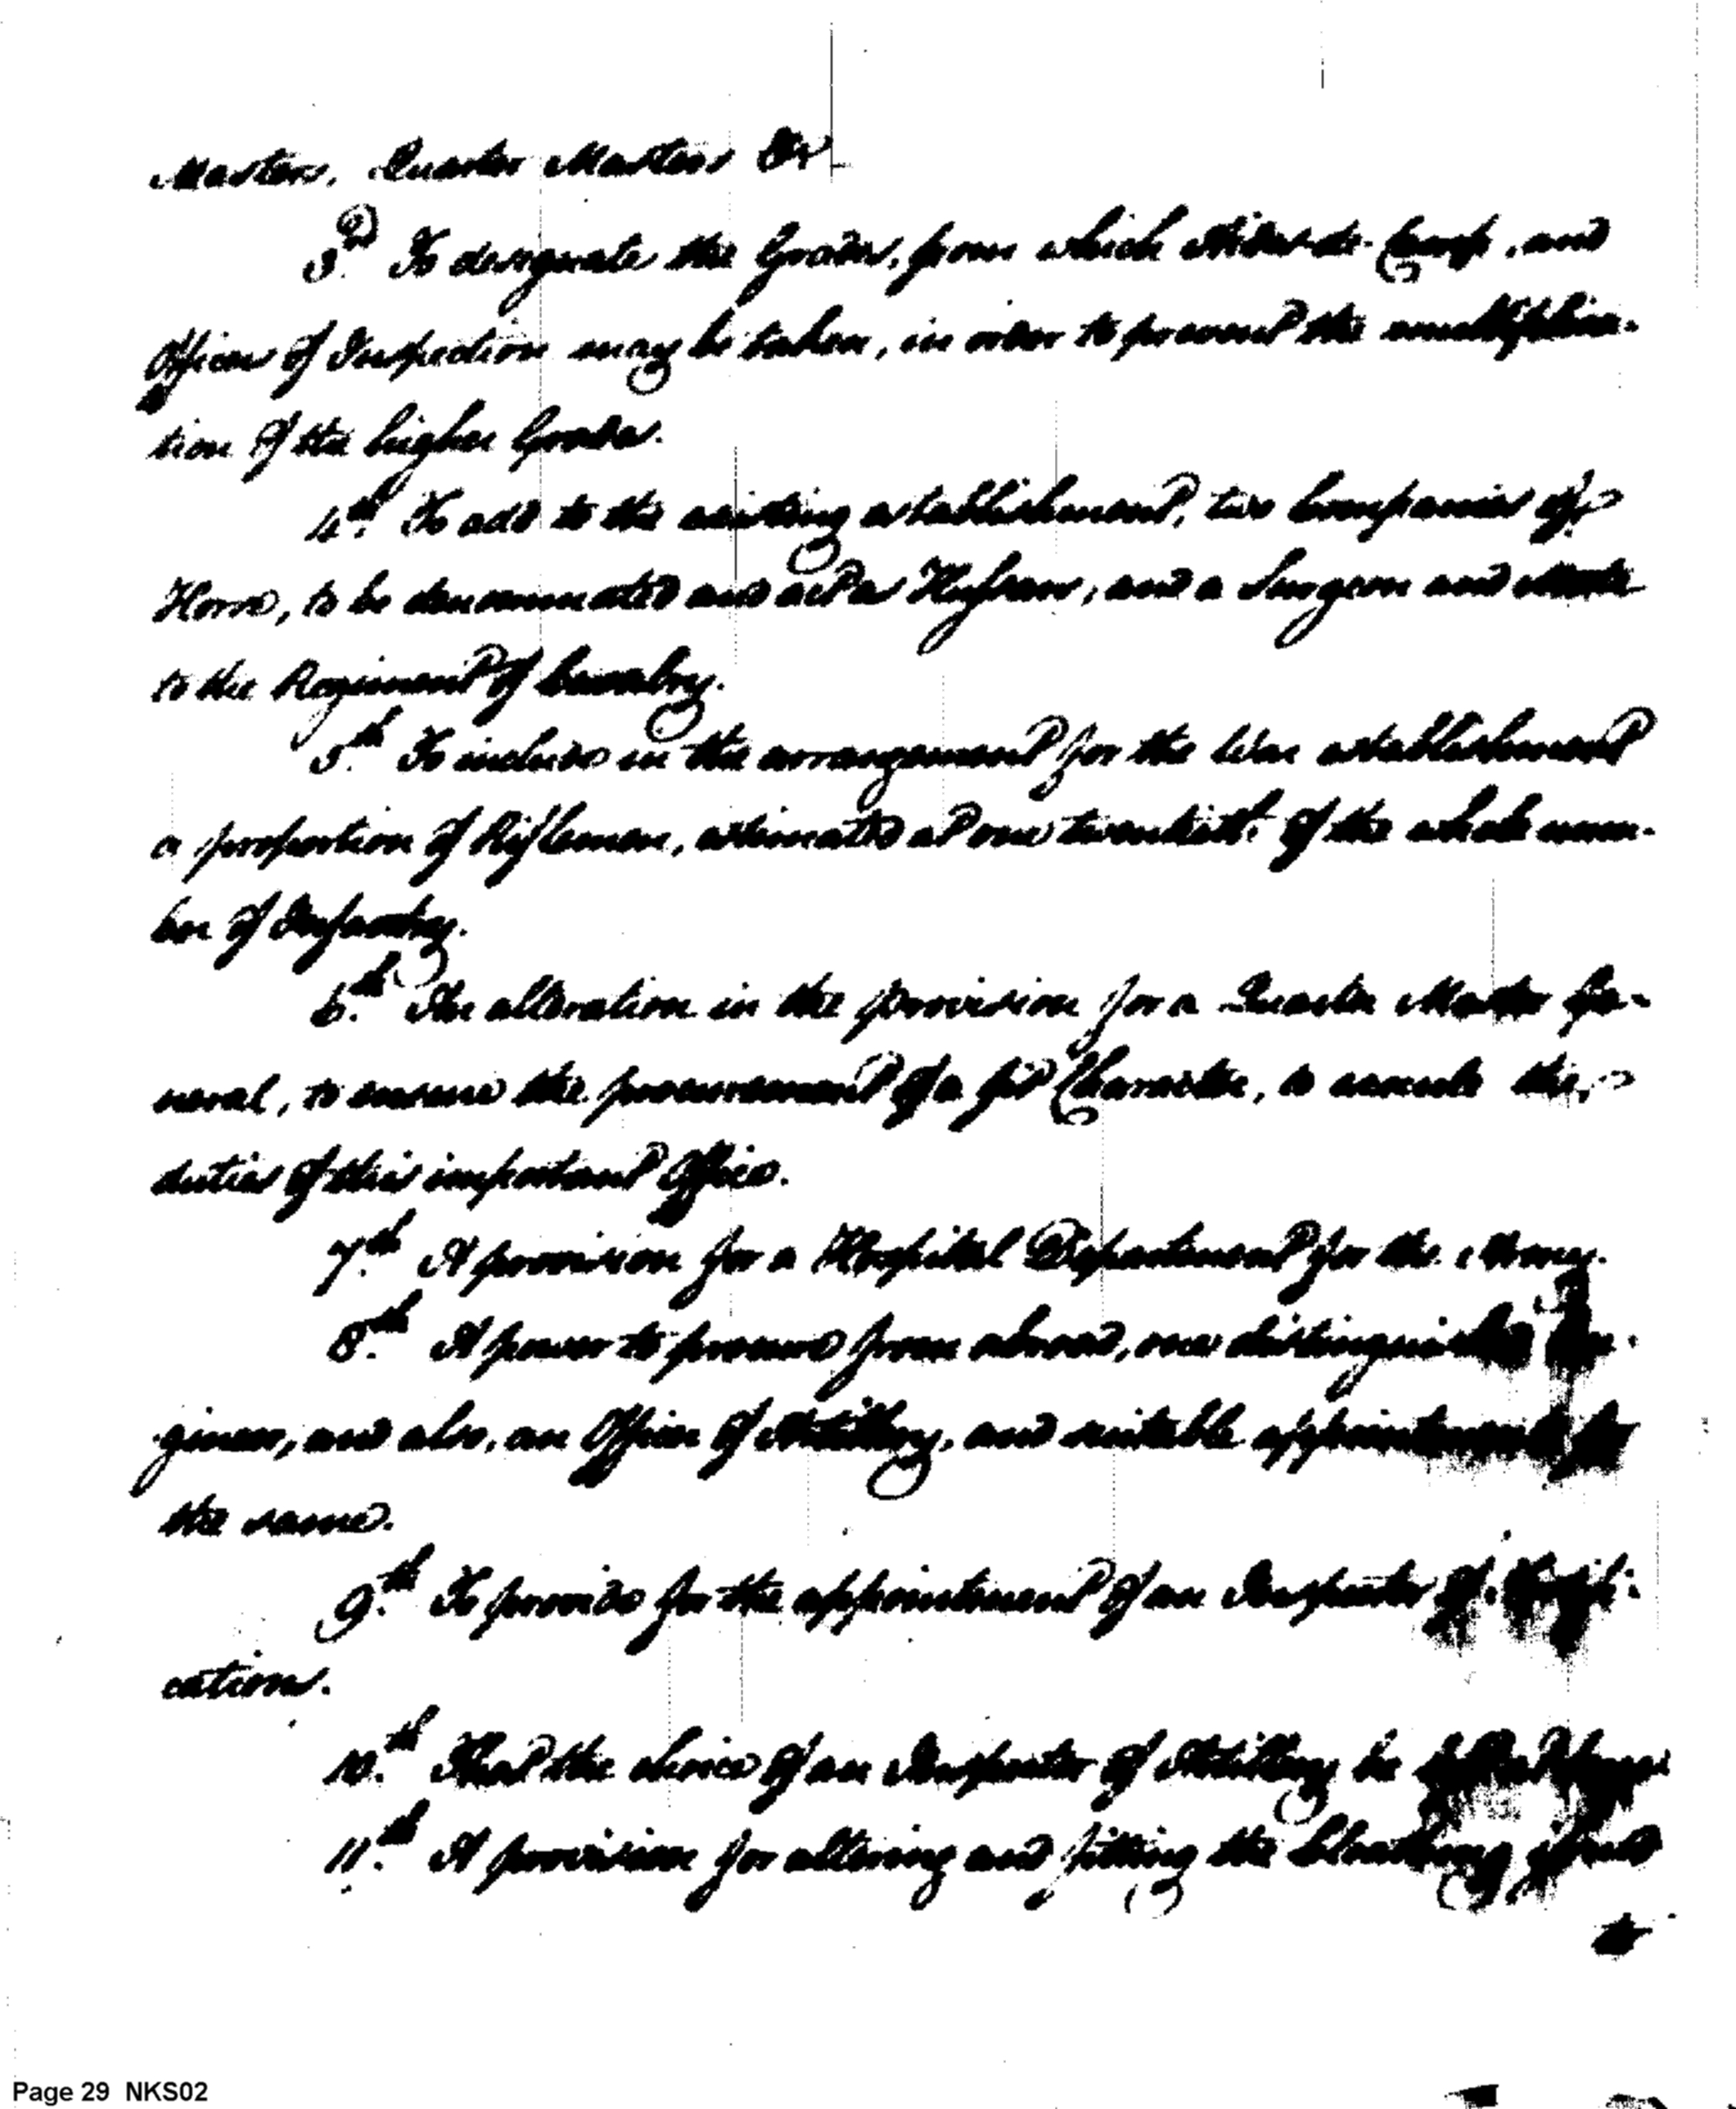 Masters, Quarter Masters &c
3d. To designate the Grades, from which Aides-de-Camp, and
Officers of Inspection may be taken, in order to prevent the multiplica-
tion of the higher Grades.
4th. To add to the existing establishment, two Companies of
Horse, to be denominated and act as Hussars, and a Surgeon and Mate
to the Regiment of Cavalry.
5th. To include in the arrangement for the War establishment
a proportion of Riflemen, estimated at one twentieth of the whole num-
ber of Infantry.
6th. An alteration in the provision for a Quarter Master Ge-
neral, to ensure the procurement of a fit Character, to execute the
duties of this important Office.
7th. A provision for a Hospital Department for the Army.
8th. A power to procure from abroad, one distinguished En-
gineer, and also, an Officer of Artillery, and suitable appointments for
the same.
9th. To provide for the appointment of an Inspector of Fortifi-
cations.
10th. That the choice of an Inspector of Artillery be
11th. A provision for altering and fitting the Cloathing
to
Page 29 NKS02